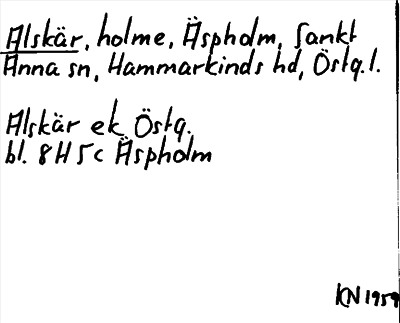 Alskär, holme, Äspholm, Sankt
Anna sn, Hammarkinds hd, Östg.l.
Alskär ek Östg.
bl. 8H 5c Äspholm
KN 1959